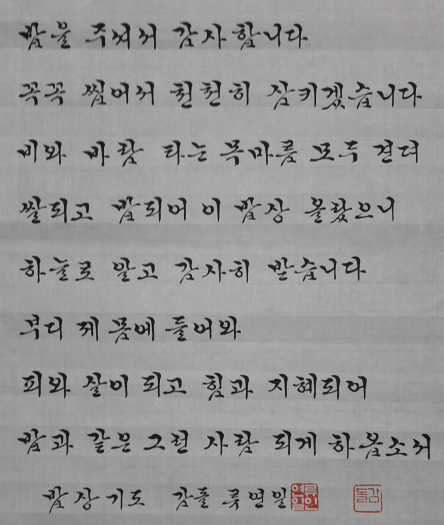 밥을 주셔서 감사합니다
꼭꼭 씹어서 천천히 삼키겠습니다
비와 바람 타는 목마름 모두 견뎌
쌀되고 밥되어 이 밥상 올랐으니
하늘로 알고 감사히 받습니다
부디 제 몸에 들어와
피와 살이 되고 힘과 지혜되어
밥과 같은 그런 사람 되게 하옵소서
밥상기도 감돌 연일